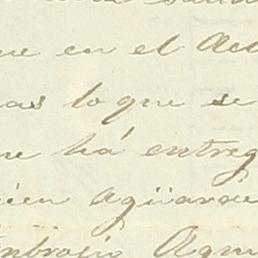 en el Act
as lo que se
ne há entreg
ien Agüarde
mbrosio Agu